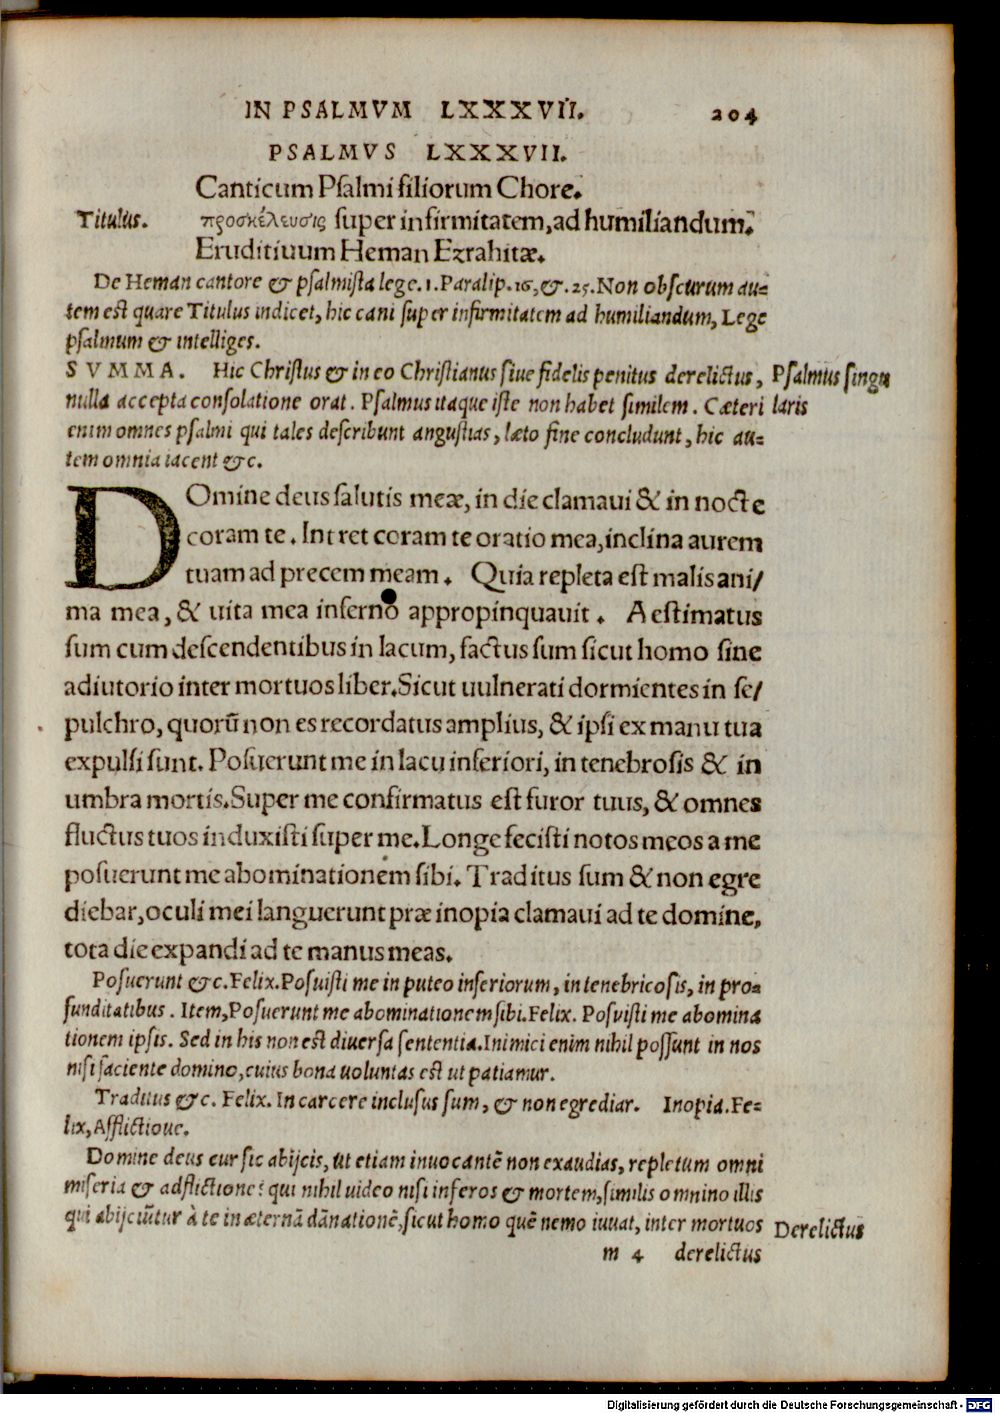 IN PSALMVM LXXXVII. 204
PSALMVS LXXXVII.
Canticum Psalmi filiorum Chore.
Titulus. προσκέλευσις super infirmitatem, ad humiliandum.
Eruditiuum Heman Ezrahitæ.
De Heman cantore & psalmista lege. 1. Paralip. 16, &. 25. Non obscurum au=
tem est quare Titulus indicet, hic cani super infirmitatem ad humiliandum, Lege
psalmum & intelliges.
SVMMA. Hic Christus & in eo Christianus siue fidelis penitus derelictus, Psalmus singu
nulla accepta consolatione orat. Psalmus itaque iste non habet similem. Cæteri laris
enim omnes psalmi qui tales describunt angustias, læto fine concludunt, hic au=
tem omnia iacent &c.
DOmine deus salutis meæ, in die clamaui & in nocte
coram te. Intret coram te oratio mea, inclina aurem
tuam ad precem meam. Quia repleta est malis ani/
ma mea, & uita mea inferno appropinquauit. Aestimatus
sum cum descendentibus in lacum, factus sum sicut homo sine
adiutorio inter mortuos liber. Sicut uulnerati dormientes in se/
pulchro, quorū non es recordatus amplius, & ipsi ex manu tua
expulsi sunt. Posuerunt me in lacu inferiori, in tenebrosis & in
umbra mortis. Super me confirmatus est furor tuus, & omnes
fluctus tuos induxisti super me. Longe fecisti notos meos a me
posuerunt me abominationem sibi. Traditus sum & non egre
diebar, oculi mei languerunt præ inopia clamaui ad te domine,
tota die expandi ad te manus meas.
Posuerunt &c. Felix. Posuisti me in puteo inferiorum, in tenebricosis, in pro=
funditatibus. Item, Posuerunt me abominationem sibi. Felix. Posuisti me abomina
tionem ipsis. Sed in his non est diuersa sententia. Inimici enim nihil possunt in nos
nisi faciente domino, cuius bona uoluntas est ut patiamur.
Traditus &c. Felix. In carcere inclusus sum, & non egrediar. Inopia. Fe=
lix, Afflictioue.
Domine deus cur sic abijcis, ut etiam inuocantē non exaudias, repletum omni
miseria & adflictione: qui nihil uideo nisi inferos & mortem, similis omnino illis
qui abijciūtur à te in æternā dānationē, sicut homo quē nemo iuuat, inter mortuos Derelictus
m 4 derelictus
Digitalisierung gefördert durch die Deutsche Forschungsgemeinschaft - DFG